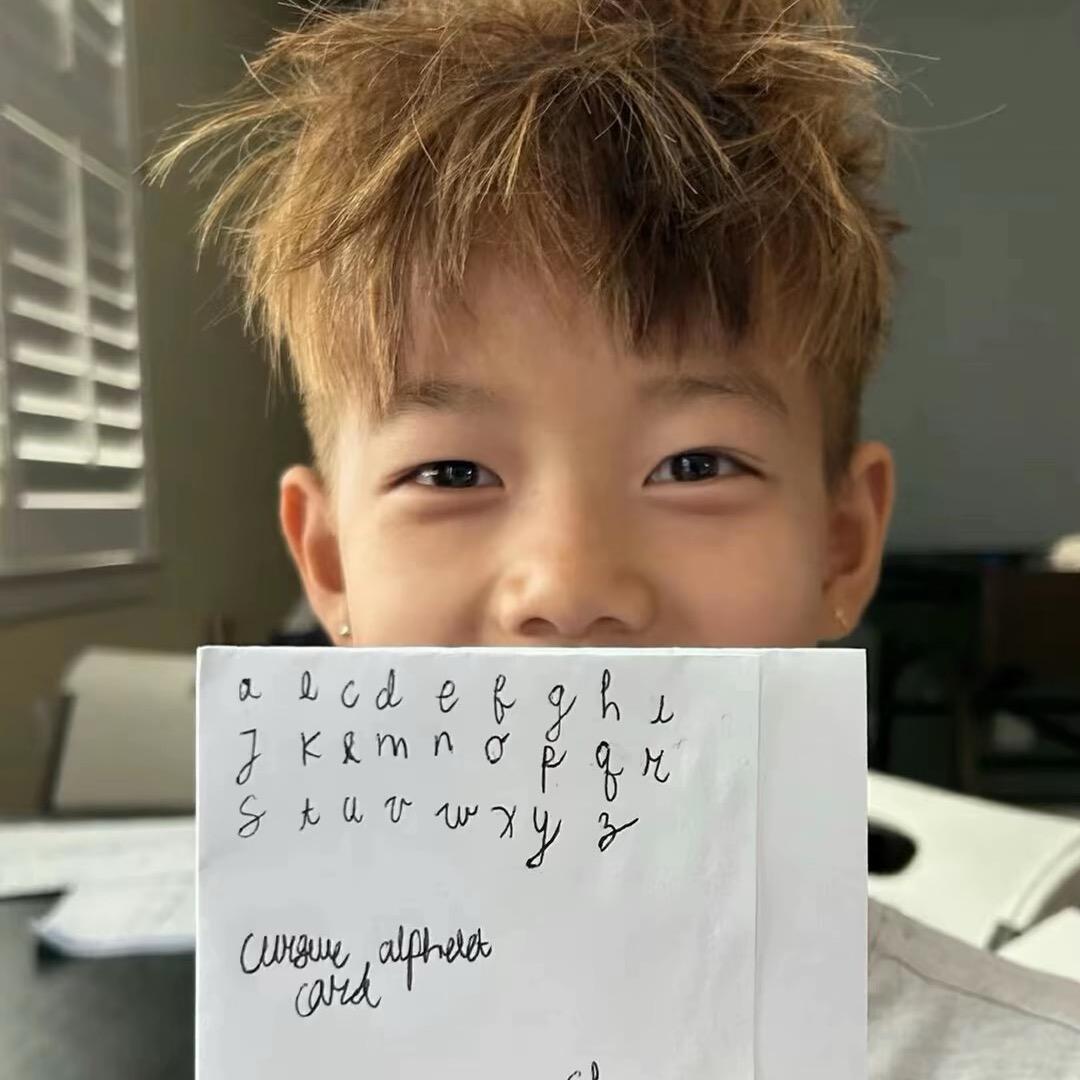 a b c d e f g h i
J K l m n o p q r
S t u v w x y z
cursive alphabet
card